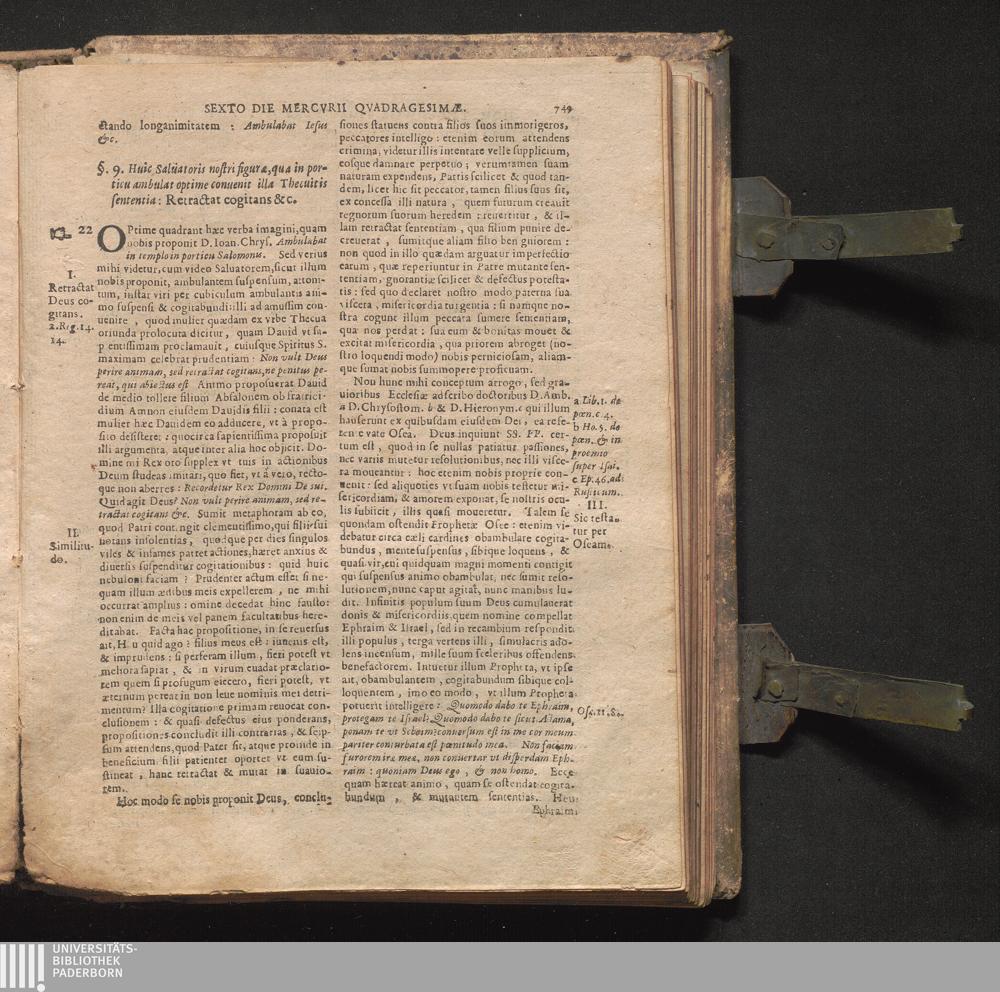 SEXTO DIE MERCVRII QVADRAGESIMÆ. 749
ctando longanimitatem : Ambulabat Iesus
&c.
§. 9. Huic Saluatoris nostri figuræ, qua in por-
ticu ambulat optime conuenit illa Thecuitis
sententia: Retractat cogitans &c.
22 OPtime quadrant hæc verba imagini, quam
nobis proponit D. Ioan. Chrys. Ambulabat
in templo in porticu Salomonis. Sed verius
mihi videtur, cum video Saluatorem, sicut illum
nobis proponit, ambulantem suspensum, attoni-
tum, instar viri per cubiculum ambulantis ani-
mo suspensi & cogitabundi: illi ad amussim con-
uenire, quod mulier quædam ex vrbe Thecua
oriunda prolocuta dicitur, quam Dauid vt sa-
pientissimam proclamauit, cuiusque Spiritus S.
maximam celebrat prudentiam: Non vult Deus
perire animam, sed retractat cogitans, ne penitus pe-
reat, qui abiectus est Animo proposuerat Dauid
de medio tollere filium Absalonem ob fratrici-
dium Amnon eiusdem Dauidis filii : conata est
mulier hæc Dauidem eo adducere, vt à propo-
sito desisteret : quocirca sapientissima proposuit
illi argumenta, atque inter alia hoc objicit. Do-
mine mi Rex oro supplex vt tuis in actionibus
Deum studeas imitari, quo fiet, vt à vero, recto-
que non aberres : Recordetur Rex Domini De sui.
Quid agit Deus? Non vult perire animam, sed re-
tractat cogitans &c. Sumit metaphoram ab eo,
quod Patri contingit clementissimo, qui filii sui
notans insolentias, quodque per dies singulos
viles & infames patret actiones, hæret anxius &
diuersis suspenditur cogitationibus : quid huic
nebuloni faciam ? Prudenter actum esset si ne-
quam illum ædibus meis expellerem, ne mihi
occurrat amplius : omine decedat hinc fausto:
non enim de meis vel panem facultatibus here-
ditabat. Facta hac propositione, in se reuersus
ait, Heu quid ago ? filius meus est : iuuenis est,
& imprudens : si perferam illum, fieri potest vt
meliora sapiat, & in virum euadat præclatio-
rem quem si profugum eiecero, fieri potest, vt
æternum pereat in non leue nominis mei detri-
mentum? Illa cogitatione primam reuocat con-
clusionem : & quasi defectus eius ponderans,
propositiones concludit illi contrarias, & seip-
sum attendens, quod Pater sit, atque proinde in
beneficium filii patienter oportet vt eum su-
stineat, hanc retractat & mutat in suauio-
rem.
Hoc modo se nobis proponit Deus, conclu-
I.
Retractat
Deus co-
gitans.
2. Reg. 14.
14.
II.
Similitu-
do.
siones statuens contra filios suos immorigeros,
peccatores intelligo : etenim eorum attendens
crimina, videtur illis intentare velle supplicium,
eosque damnare perpetuo ; verumtamen suam
naturam expendens, Patris scilicet & quod tan-
dem, licet hic sit peccator, tamen filius suus sit,
ex concessa illi natura, quem futurum creauit
regnorum suorum heredem : reuertitur, & il-
lam retractat sententiam, qua filium punire de-
creuerat, sumitque aliam filio benigniorem :
non quod in illo quædam arguatur imperfectio
earum, quæ reperiuntur in Patre mutante sen-
tentiam, ignorantiæ scilicet & defectus potesta-
tis : sed quo declaret nostro modo paterna sua
viscera, misericordia turgentia : si namque no-
stra cogunt illum peccata sumere sententiam,
qua nos perdat : sua eum & bonitas mouet &
excitat misericordia, qua priorem abroget (no-
stro loquendi modo) nobis perniciosam, aliam-
que sumat nobis summopere proficuam.
Non hunc mihi conceptum arrogo, sed gra-
uioribus Ecclesiæ adscribo doctoribus D. Amb.
a D. Chrysostom. b & D. Hieronym. c qui illum
hauserunt ex quibusdam eiusdem Dei, ea rese-
rente vate Osea. Deus inquiunt SS. PP. cer-
tum est, quod in se nullas patiatur passiones,
nec variis mutetur resolutionibus, nec illi visce-
ra moueantur : hoc etenim nobis proprie con-
uenit : sed aliquoties vt suam nobis testetur mi-
sericordiam, & amorem exponat, se nostris ocu-
lis subiicit, illis quasi moueretur. Talem se
quondam ostendit Prophetæ Osee : etenim vi-
debatur circa cæli cardines obambulare cogita-
bundus, mente suspensus, sibique loquens, &
quasi vir, cui quidquam magni momenti contigit
qui suspensus animo obambulat, nec sumit reso-
lutionem, nunc caput agitat, nunc manibus lu-
dit. Infinitis populum suum Deus cumulauerat
donis & misericordiis, quem nomine compellat
Ephraim & Israel, sed in recambium respondit
illi populus, terga vertens illi, simulacris ado-
lens incensum, mille suum sceleribus offendens
benefactorem. Intuetur illum Propheta, vt ipse
ait, obambulantem, cogitabundum sibique col-
loquentem, imo eo modo, vt illum Propheta
potuerit intelligere : Quomodo dabo te Ephraim,
protegam te Israel; Quomodo dabo te sicut Adama,
ponam te vt Seboim? conuersum est in me cor meum
pariter conturbata est pœnitudo mea. Non faciam
furorem iræ meæ, non conuertar vt disperdam Eph-
raim : quoniam Deus ego, & non homo. Ecce
quam hæreat animo, quam se ostendat cogita-
bundum, & mutantem sententias. Heu
Ephraim
a Lib. 1. de
pœn. c. 4.
b Ho. 5. de
pœn. & in
proemio
super Isai.
c Ep. 46. ad
Rusticum.
III.
Sic testa-
tur per
Oseam.
Ose. 11. 8.
UNIVERSITÄTS-
BIBLIOTHEK
PADERBORN